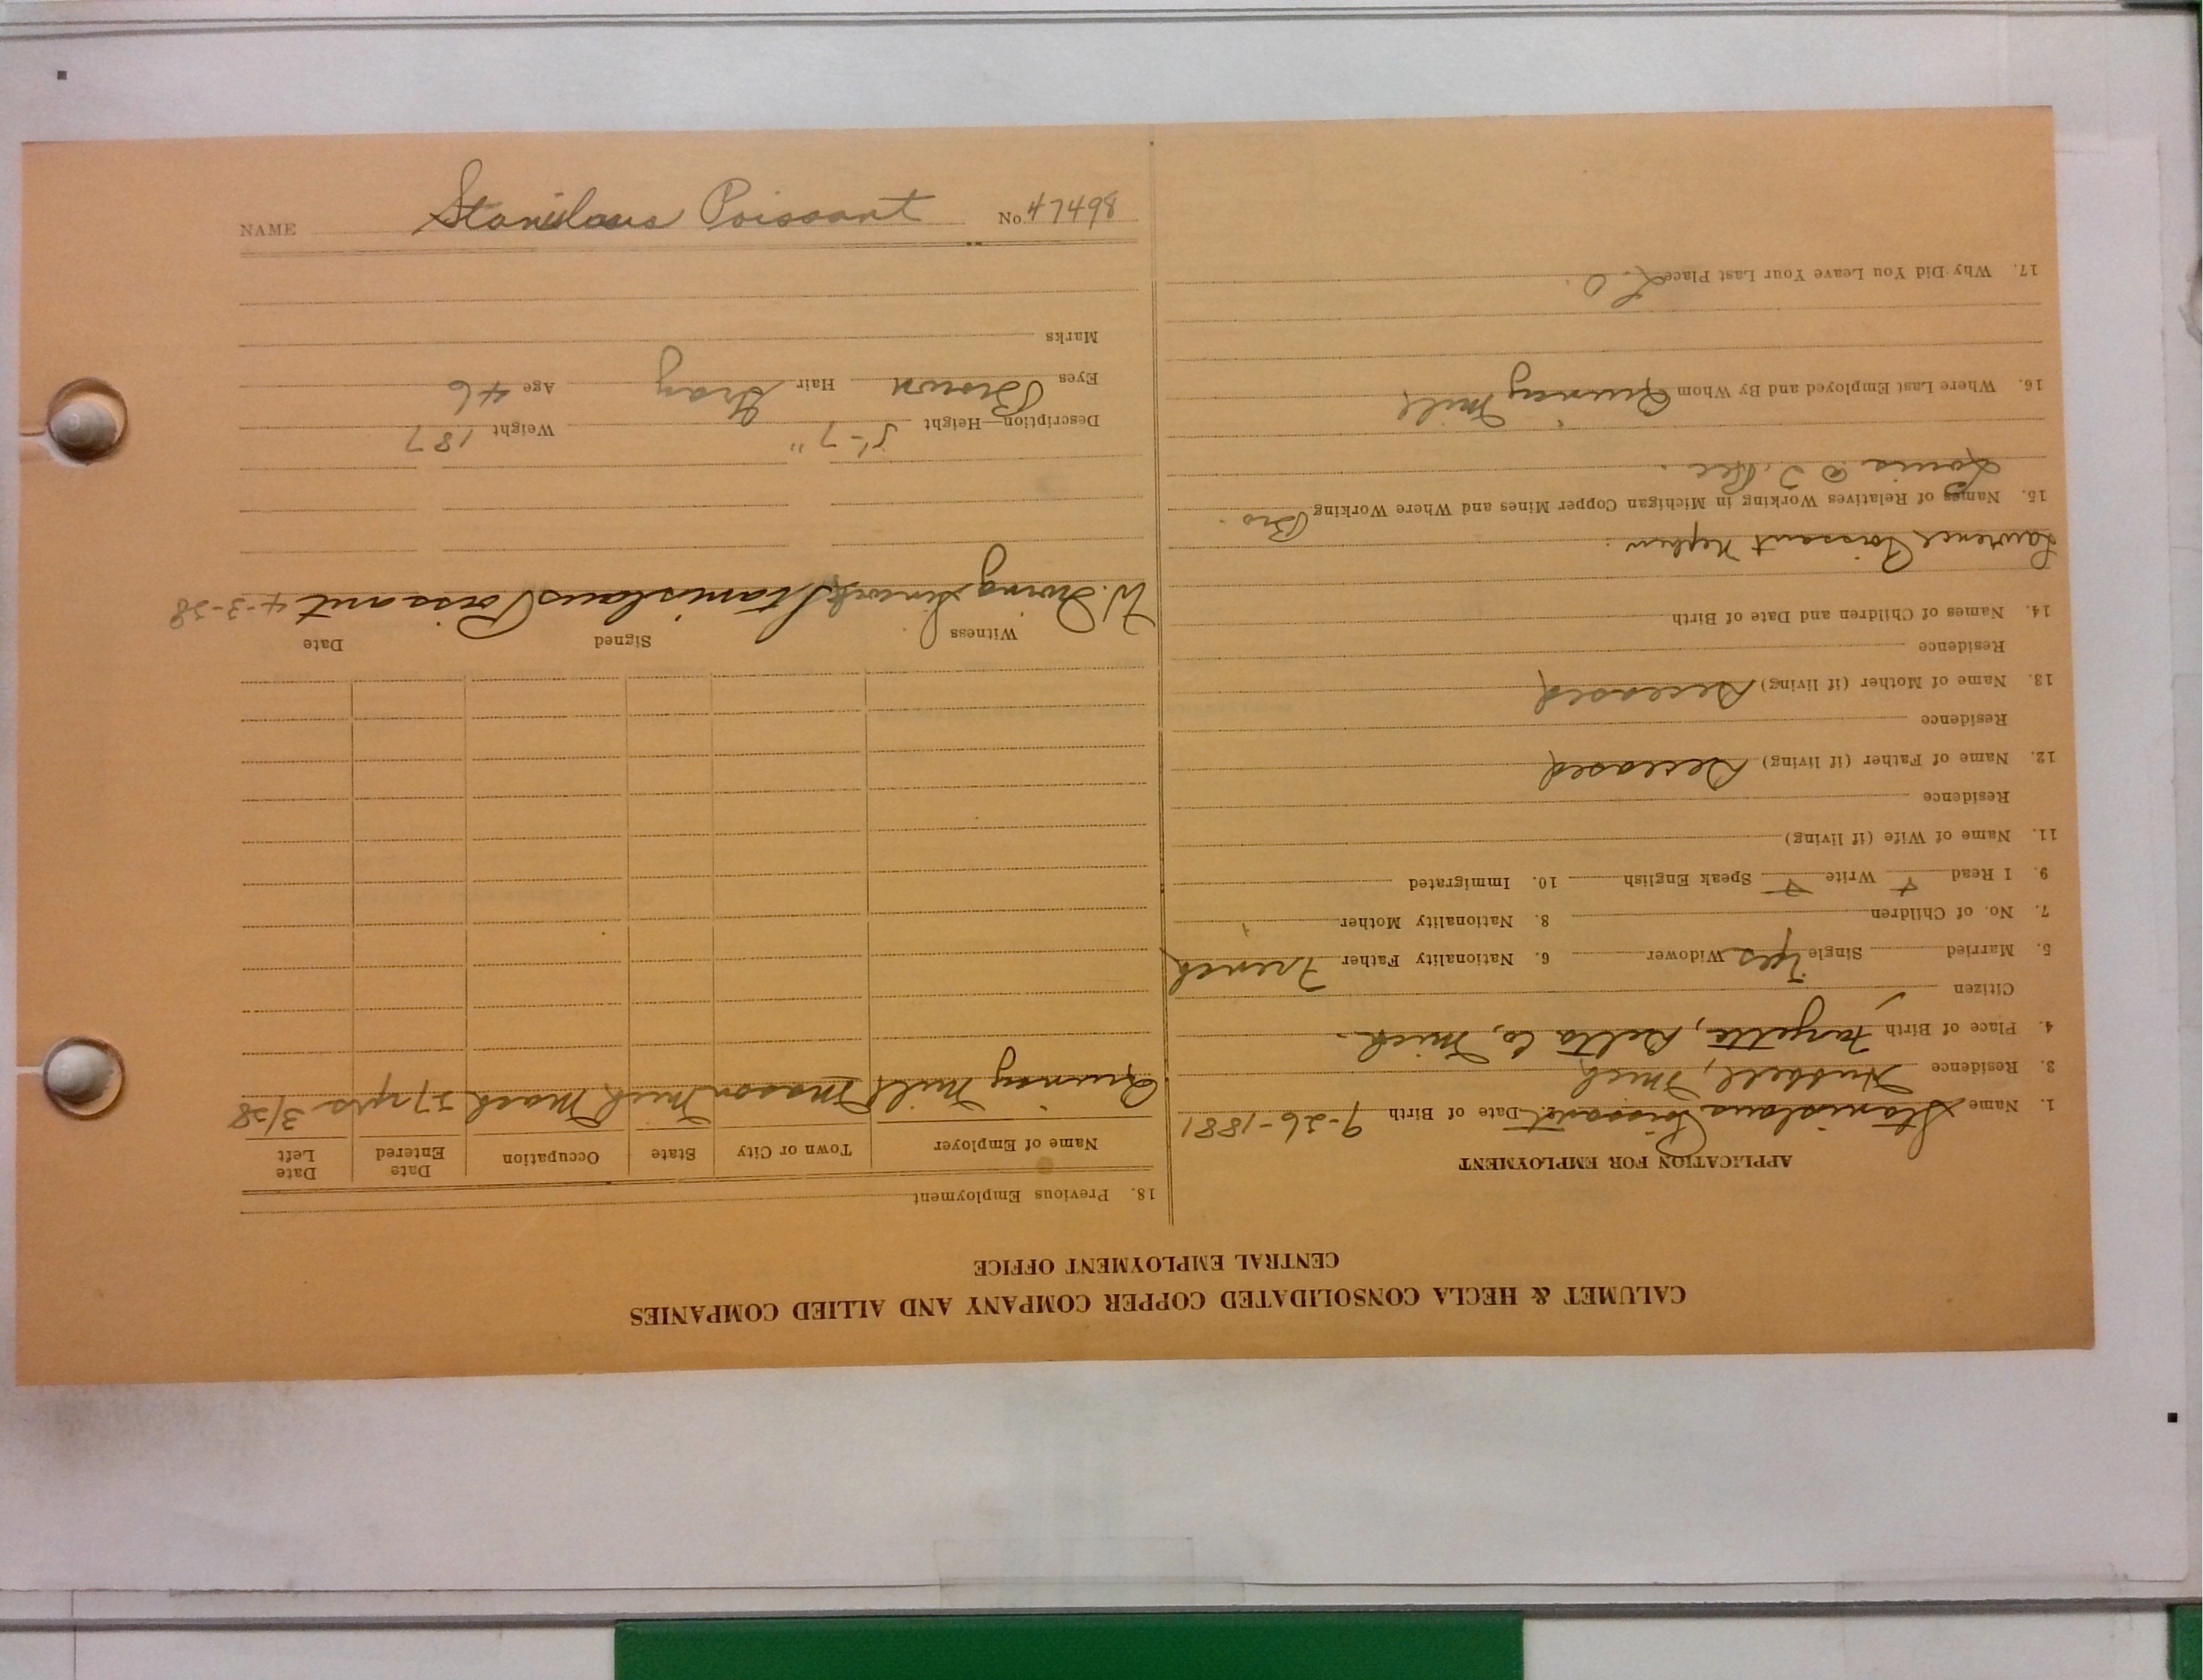 NAME Stanislaus Poissant No. 47498
CALUMET & HECLA CONSOLIDATED COPPER COMPANY AND ALLIED COMPANIES
CENTRAL EMPLOYMENT OFFICE
APPLICATION FOR EMPLOYMENT
1. Name Stanislaus Poissant Date of Birth 9-26-1881
3. Residence Hubbell, Mich
4. Place of Birth Fayette, Delta Co, Mich.
Citizen
5. Married Single Yes Widower 6. Nationality Father French
7. No. of Children 8. Nationality Mother
9. I Read + Write + Speak English 10. Immigrated
11. Name of Wife (if living)
Residence
12. Name of Father (if living) Deceased
Residence
13. Name of Mother (if living) Deceased
Residence
14. Names of Children and Date of Birth
Lawrence Poissant Nephew.
15. Names of Relatives Working in Michigan Copper Mines and Where Working Bro.
Louis @
16. Where Last Employed and By Whom Quincy Mill
17. Why Did You Leave Your Last Place L.O.
18. Previous Employment
Name of Employer Town or City State Occupation Date Entered Date Left
Quincy Mill Mason Mich Mach 27 yrs 3/28
Witness Signed Date
W. Irving Stanislaus Poissant 4-3-28
Description—Height 5'-7" Weight 187
Eyes Brown Hair Gray Age 46
Marks